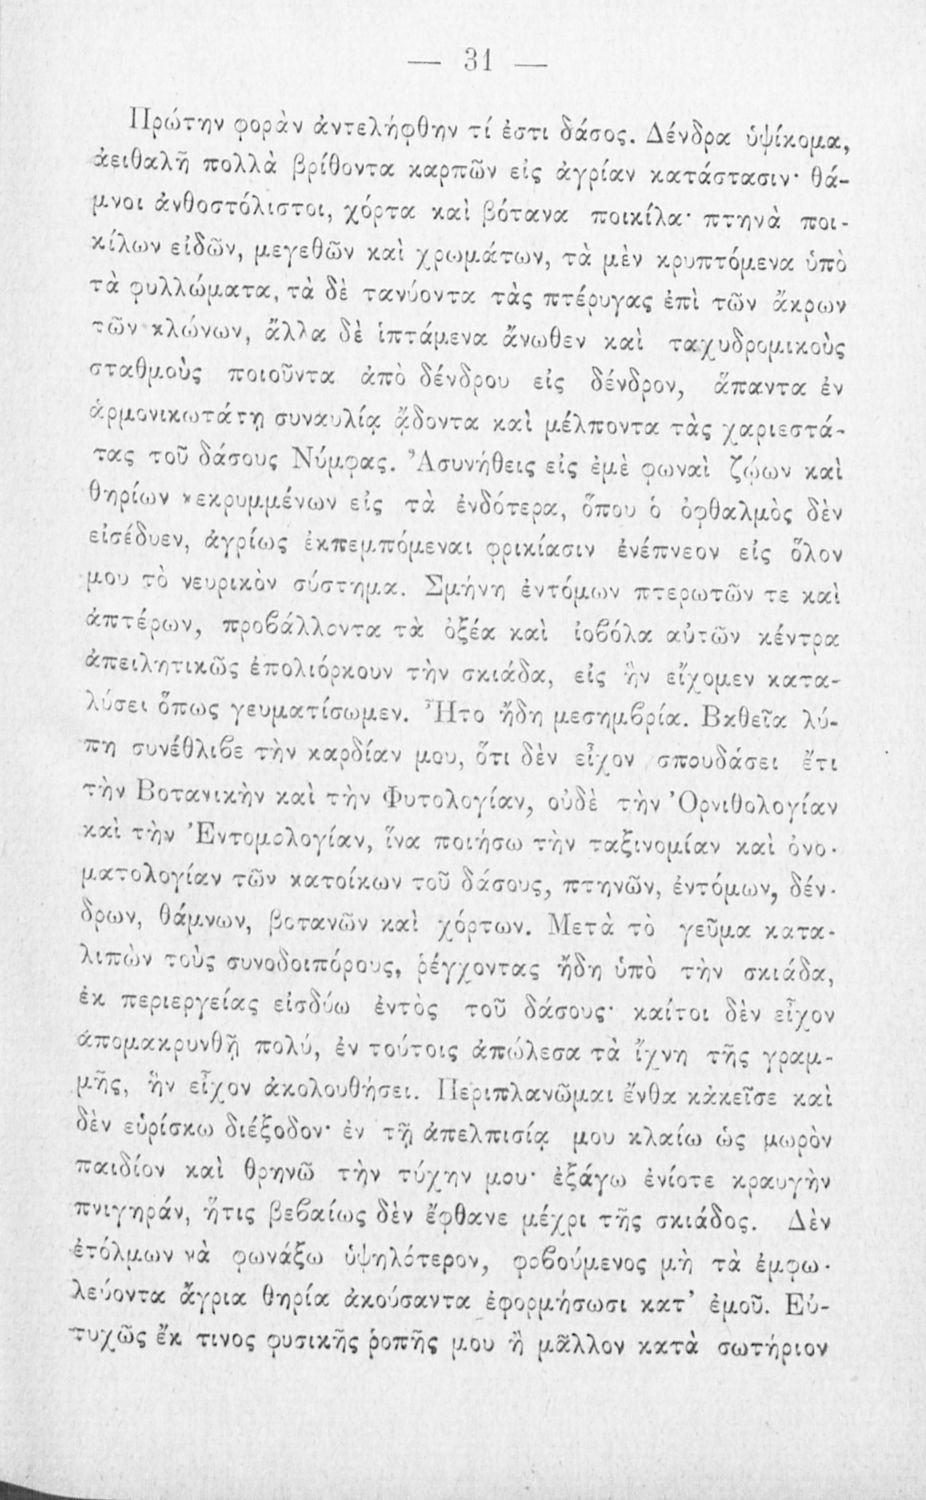 — 31 —
Πρώτην φορὰν ἀντελήφθην τί ἐστι δάσος. Δένδρα ὑψίκομα,
ἀειθαλῆ πολλὰ βρίθοντα καρπῶν εἰς ἀγρίαν κατάστασιν· θά-
μνοι ἀνθοστόλιστοι, χόρτα καὶ βότανα ποικίλα· πτηνὰ ποι-
κίλων εἰδῶν, μεγεθῶν καὶ χρωμάτων, τὰ μὲν κρυπτόμενα ὑπὸ
τὰ φυλλώματα, τὰ δὲ τανύοντα τὰς πτέρυγας ἐπὶ τῶν ἄκρων
τῶν κλώνων, ἄλλα δὲ ἱπτάμενα ἄνωθεν καὶ ταχυδρομικοὺς
σταθμοὺς ποιοῦντα ἀπὸ δένδρου εἰς δένδρον, ἅπαντα ἐν
ἁρμονικωτάτῃ συναυλίᾳ ᾄδοντα καὶ μέλποντα τὰς χαριεστά-
τας τοῦ δάσους Νύμφας. Ἀσυνήθεις εἰς ἐμὲ φωναὶ ζῴων καὶ
θηρίων κεκρυμμένων εἰς τὰ ἐνδότερα, ὅπου ὁ ὀφθαλμὸς δὲν
εἰσέδυεν, ἀγρίως ἐκπεμπόμεναι φρικίασιν ἐνέπνεον εἰς ὅλον
μου τὸ νευρικὸν σύστημα. Σμήνη ἐντόμων πτερωτῶν τε καὶ
ἀπτέρων, προβάλλοντα τὰ ὀξέα καὶ ἰοβόλα αὐτῶν κέντρα
ἀπειλητικῶς ἐπολιόρκουν τὴν σκιάδα, εἰς ἣν εἴχομεν κατα-
λύσει ὅπως γευματίσωμεν. Ἦτο ἤδη μεσημβρία. Βαθεῖα λύ-
πη συνέθλιβε τὴν καρδίαν μου, ὅτι δὲν εἶχον σπουδάσει ἔτι
τὴν Βοτανικὴν καὶ τὴν Φυτολογίαν, οὐδὲ τὴν Ὀρνιθολογίαν
καὶ τὴν Ἐντομολογίαν, ἵνα ποιήσω τὴν ταξινομίαν καὶ ὀνο-
ματολογίαν τῶν κατοίκων τοῦ δάσους, πτηνῶν, ἐντόμων, δέν-
δρων, θάμνων, βοτανῶν καὶ χόρτων. Μετὰ τὸ γεῦμα κατα-
λιπὼν τοὺς συνοδοιπόρους, ῥέγχοντας ἤδη ὑπὸ τὴν σκιάδα,
ἐκ περιεργείας εἰσδύω ἐντὸς τοῦ δάσους· καίτοι δὲν εἶχον
ἀπομακρυνθῆ πολύ, ἐν τούτοις ἀπώλεσα τὰ ἴχνη τῆς γραμ-
μῆς, ἣν εἶχον ἀκολουθήσει. Περιπλανῶμαι ἔνθα κἀκεῖσε καὶ
δὲν εὑρίσκω διέξοδον· ἐν τῇ ἀπελπισίᾳ μου κλαίω ὡς μωρὸν
παιδίον καὶ θρηνῶ τὴν τύχην μου· ἐξάγω ἐνίοτε κραυγὴν
πνιγηράν, ἥτις βεβαίως δὲν ἔφθανε μέχρι τῆς σκιάδος. Δὲν
ἐτόλμων νὰ φωνάξω ὑψηλότερον, φοβούμενος μὴ τὰ ἐμφω-
λεύοντα ἄγρια θηρία ἀκούσαντα ἐφορμήσωσι κατ' ἐμοῦ. Εὐ-
τυχῶς ἔκ τινος φυσικῆς ῥοπῆς μου ἢ μᾶλλον κατὰ σωτήριον